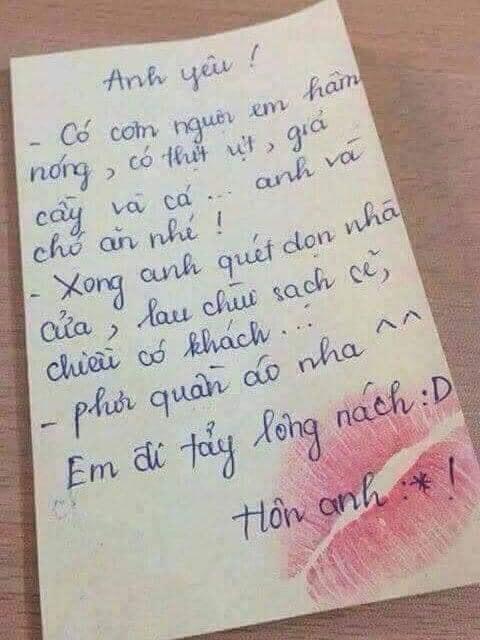 Anh yêu !
- Có cơm nguội em hâm
nóng, có thịt vịt, giả
cầy và cá... anh và
chó ăn nhé !
- Xong anh quét dọn nhà
cửa, lau chùi sạch sẽ,
chiều có khách...
- phơi quần áo nha ^^
Em đi tẩy lông nách :D
Hôn anh :* !